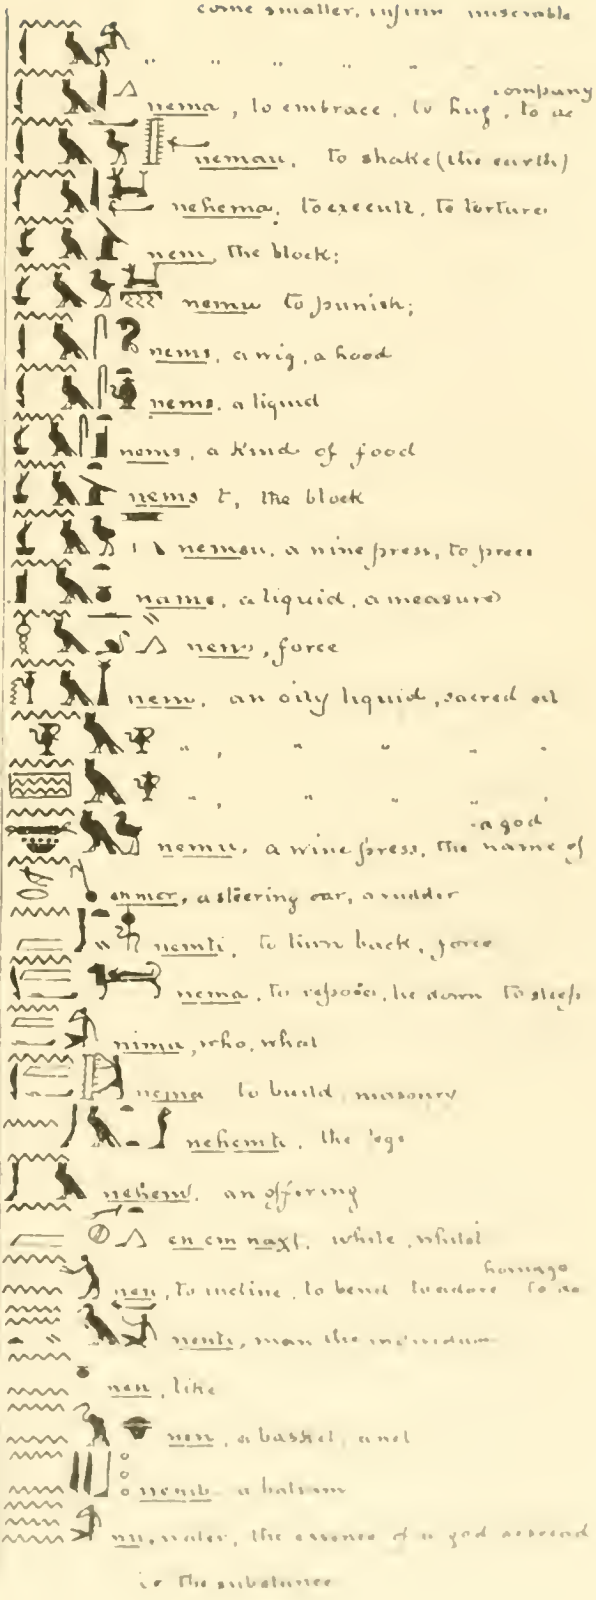 come smaller, infirm miserable
" " " " "
company
nema, to embrace, to hug, to ac
nemau, to shake (the earth)
nehema, to execute, to torture
nem, the block;
nemu to punish;
nems, a wig, a hood
nems, a liquid
nems, a kind of food
nems t, the block
nemsu, a wine press, to press
name, a liquid, a measure
nem, force
nem, an oily liquid, sacred oil
" , " " " "
" , " " "
a god
nemu, a wine press, the name of
enmer, a steering oar, a rudder
nemti, to turn back, force
nema, to repose, lie down to sleep
nima, who, what
nema to build, masonry
nehemti, the legs
nehem, an offering
en em naxt, while, whilst
homage
nen, to incline, to bend to adore to do
nenti, man the individual
nen, like
nen, a basket, a net
nenib a balsam
nu, water, the essence of a god
is the substance